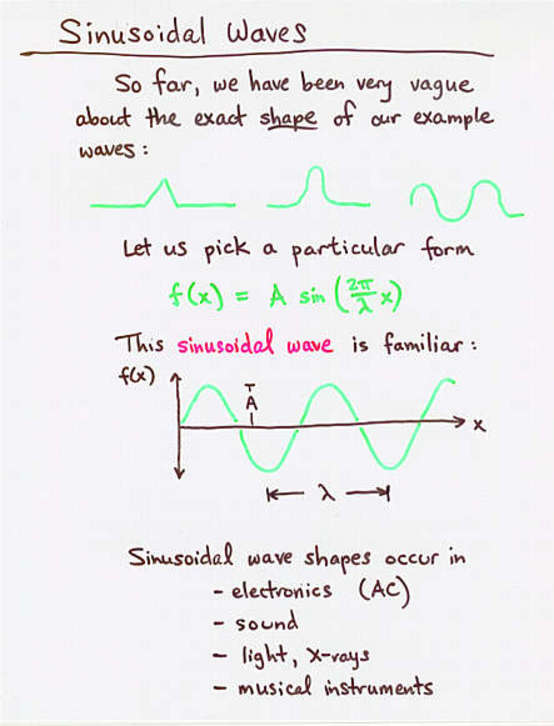 Sinusoidal Waves
So far, we have been very vague
about the exact shape of our example
waves :
Let us pick a particular form
f(x) = A sin (2π/λ x)
This sinusoidal wave is familiar :
f(x)
A
x
λ
Sinusoidal wave shapes occur in
- electronics (AC)
- sound
- light, X-rays
- musical instruments